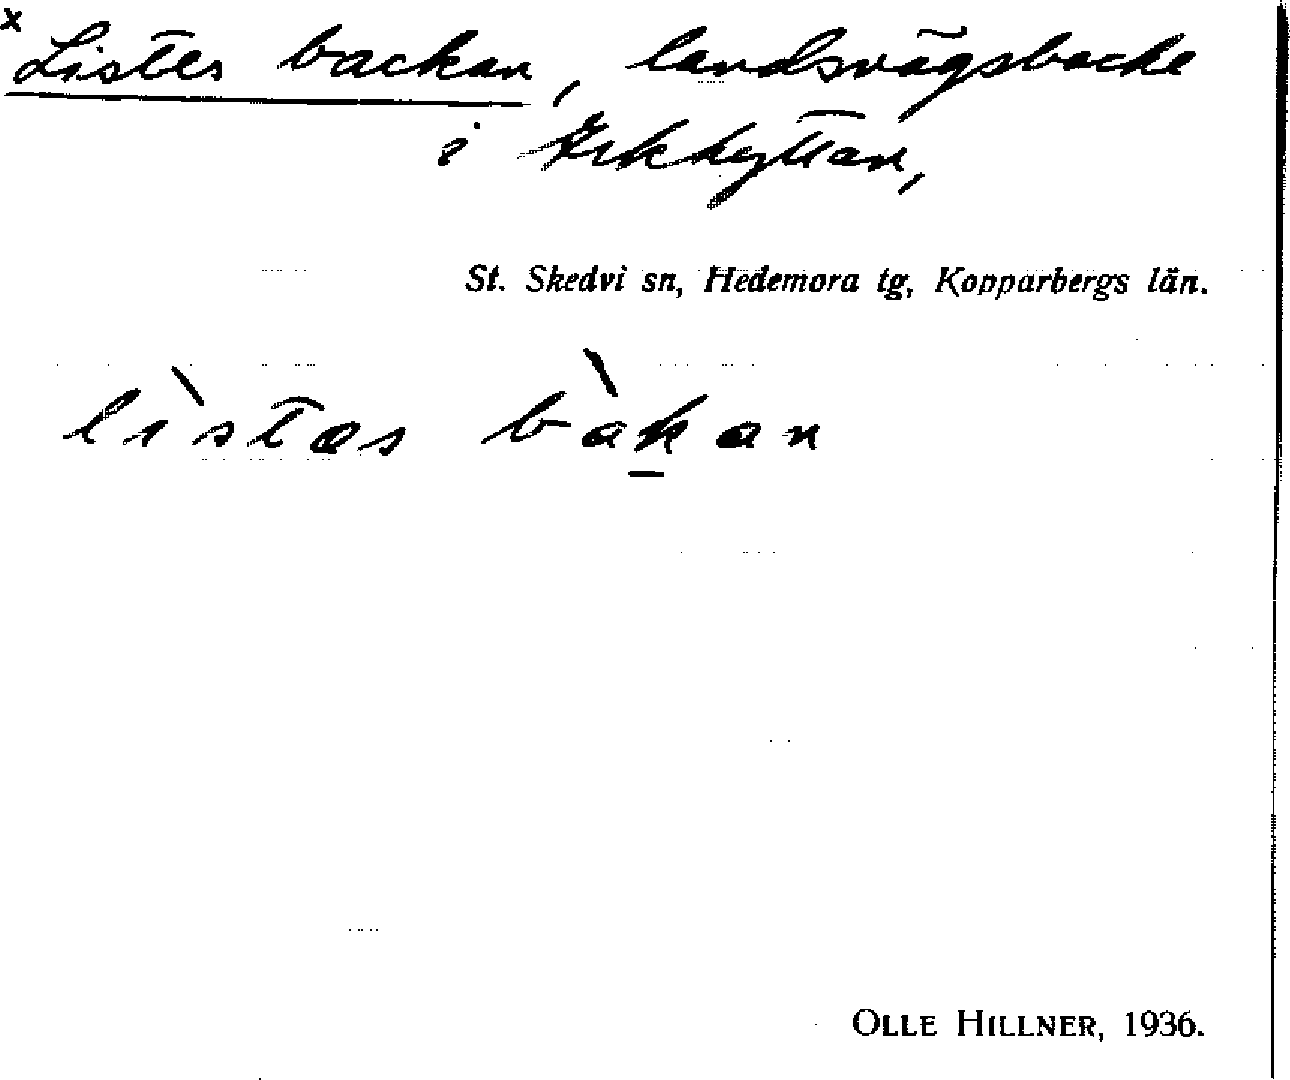 x Listes backan, landsvägsbacke
i Erkhyttan,
St. Skedvi sn, Hedemora tg, Kopparbergs län.
lìstæs bàkan
OLLE HILLNER, 1936.